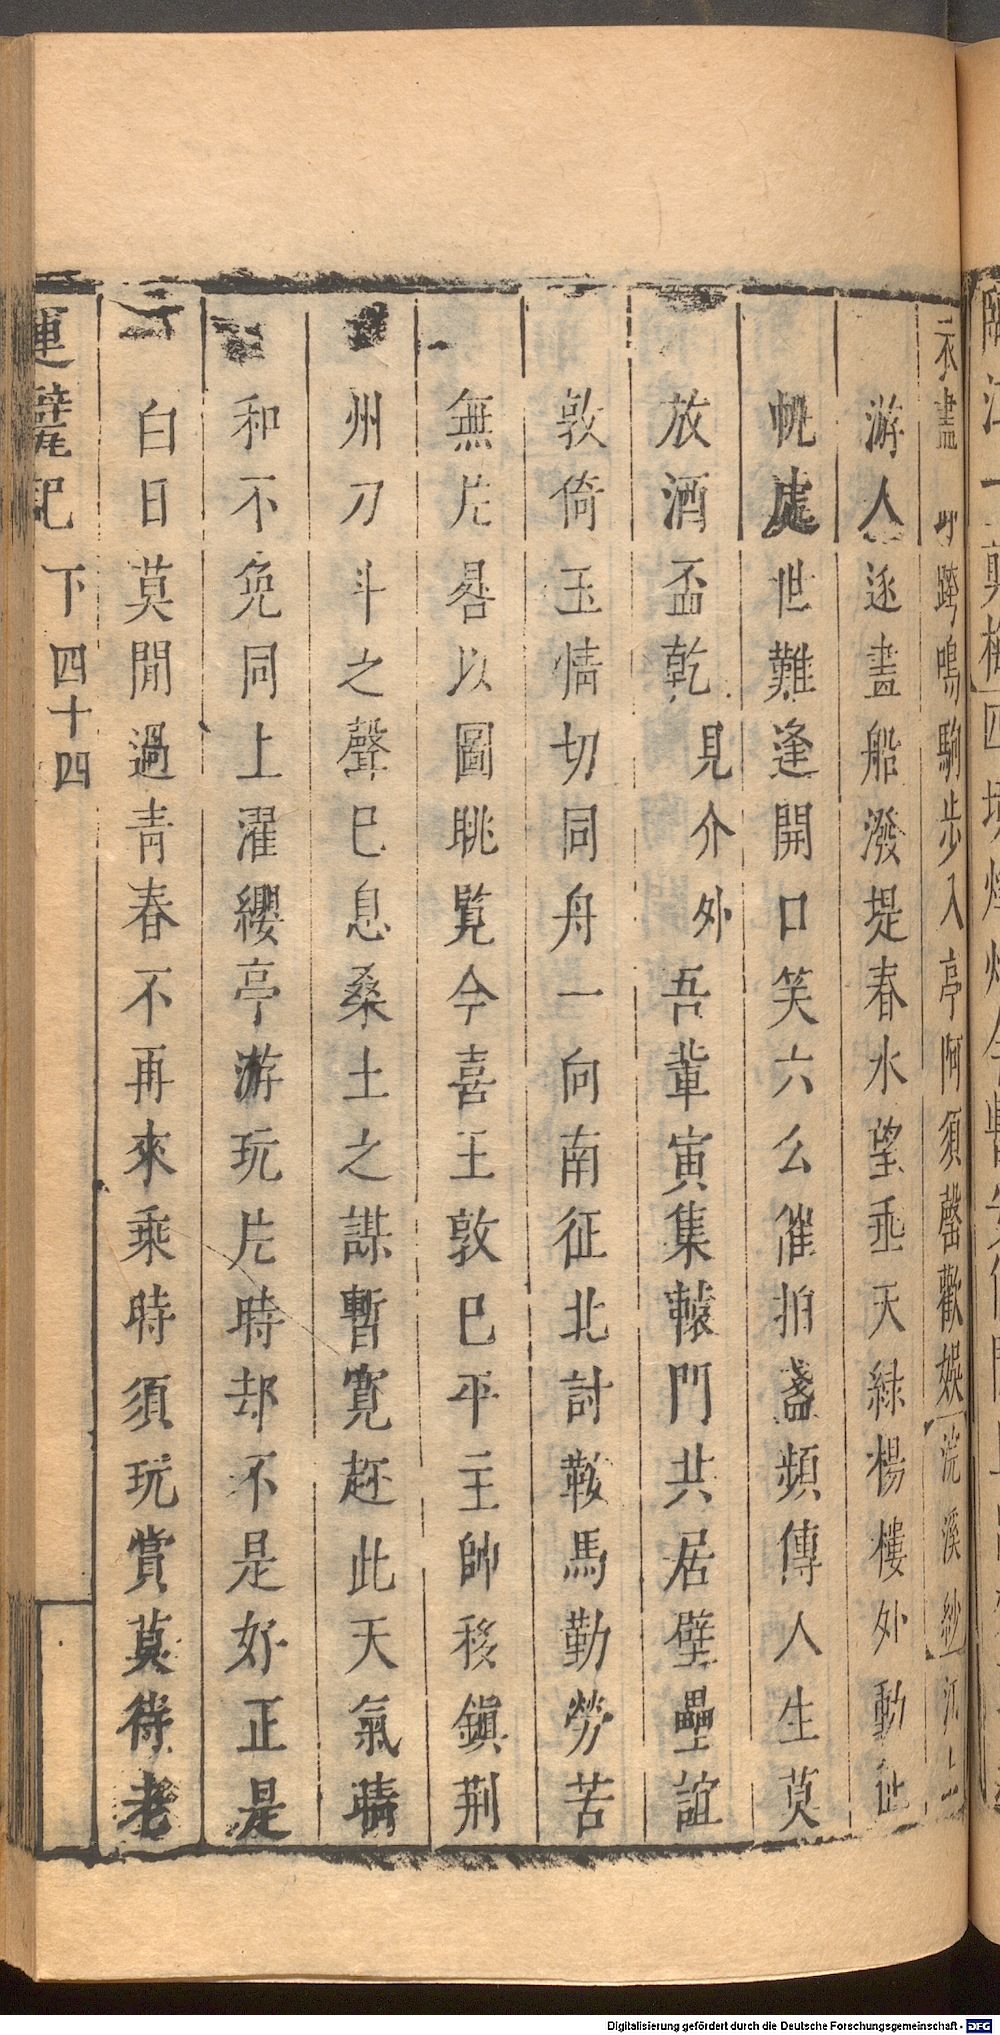 游人逐畫船潑堤春水望垂天綠楊樓外動
帆處世難逢開口笑六么催拍盞頻傳人生莫
放酒盃乾見介外吾輩寅集轅門共居壁壘誼
敦倚玉情切同舟一向南征北討鞍馬勤勞苦
無片晷以圖眺覽今喜王敦巳平主帥移鎭荆
州刀斗之聲巳息桑土之謀暫寬趂此天氣晴
和不免同上濯纓亭游玩片時却不是好正是
白日莫閒過青春不再來乘時須玩賞莫待老
運甓記
下
四十四
跨鳴駒步入亭阿須罄歡娛浣溪紗江上
Digitalisierung gefördert durch die Deutsche Forschungsgemeinschaft - DFG